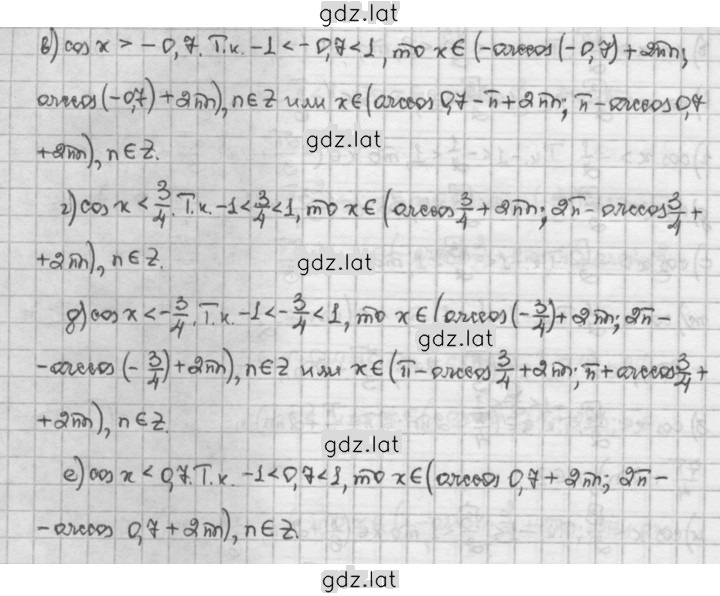 gdz.lat
в) cos x > -0,7. Т.к. -1 < -0,7 < 1, то x ∈ (-arccos(-0,7) + 2πn;
arccos(-0,7) + 2πn), n ∈ Z или x ∈ (arccos 0,7 - π + 2πn; π - arccos 0,7
+ 2πn), n ∈ Z.
gdz.lat
г) cos x < 3/4. Т.к. -1 < 3/4 < 1, то x ∈ (arccos 3/4 + 2πn; 2π - arccos 3/4 +
+ 2πn), n ∈ Z.
gdz.lat
д) cos x < -3/4. Т.к. -1 < -3/4 < 1, то x ∈ (arccos(-3/4) + 2πn; 2π -
gdz.lat
- arccos(-3/4) + 2πn), n ∈ Z или x ∈ (π - arccos 3/4 + 2πn; π + arccos 3/4 +
+ 2πn), n ∈ Z.
gdz.lat
е) cos x < 0,7. Т.к. -1 < 0,7 < 1, то x ∈ (arccos 0,7 + 2πn; 2π -
- arccos 0,7 + 2πn), n ∈ Z.
gdz.lat